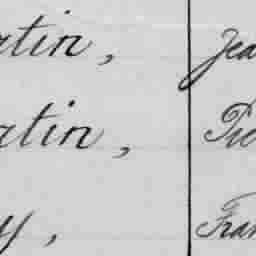 rtin, Jea
rtin, Pie
y, Fran